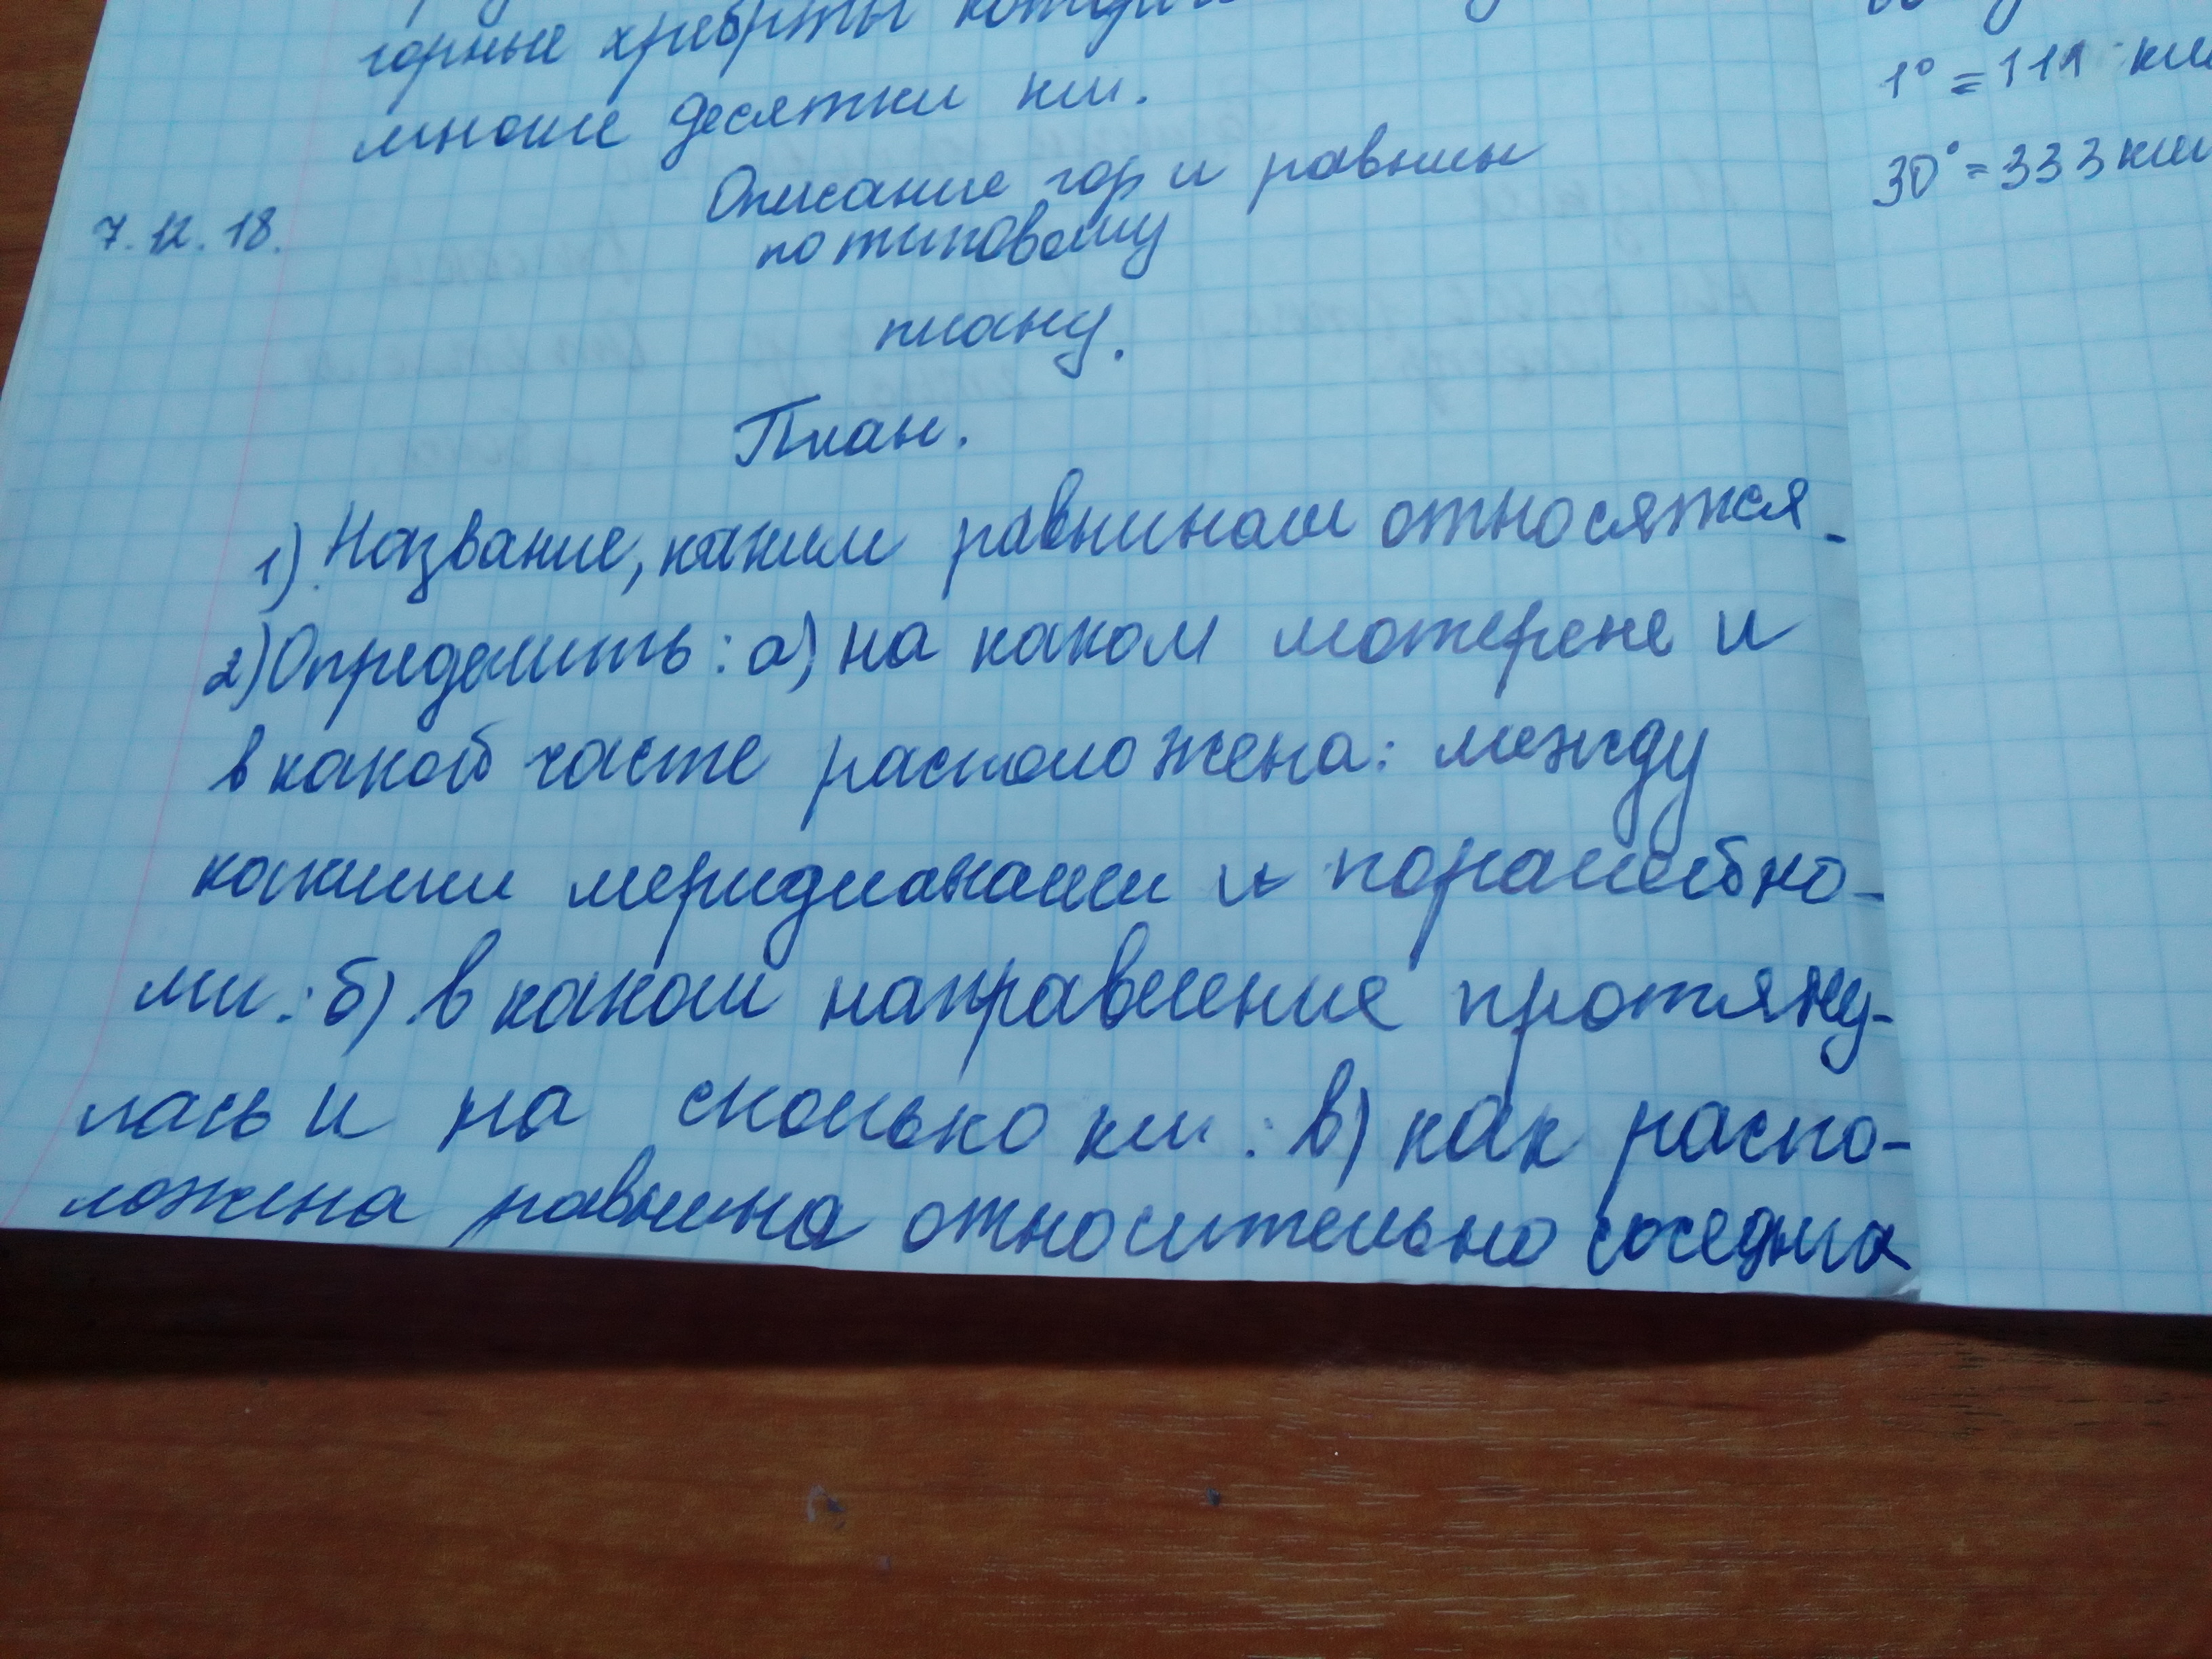 горные хребты
многие десятки км.
7.12.18.
Описание гор и равнины
по типовому
плану.
План.
1) Название, каким равнинам относятся.
2) Определить: а) на каком матерене и
в какой часте расположена: между
какими меридианами и паралельно-
ми.: б) в каком направление протяну-
лась и на сколько км.: в) как распо-
ложена равнина относительно соседних
1° = 111 км
30° = 333 км